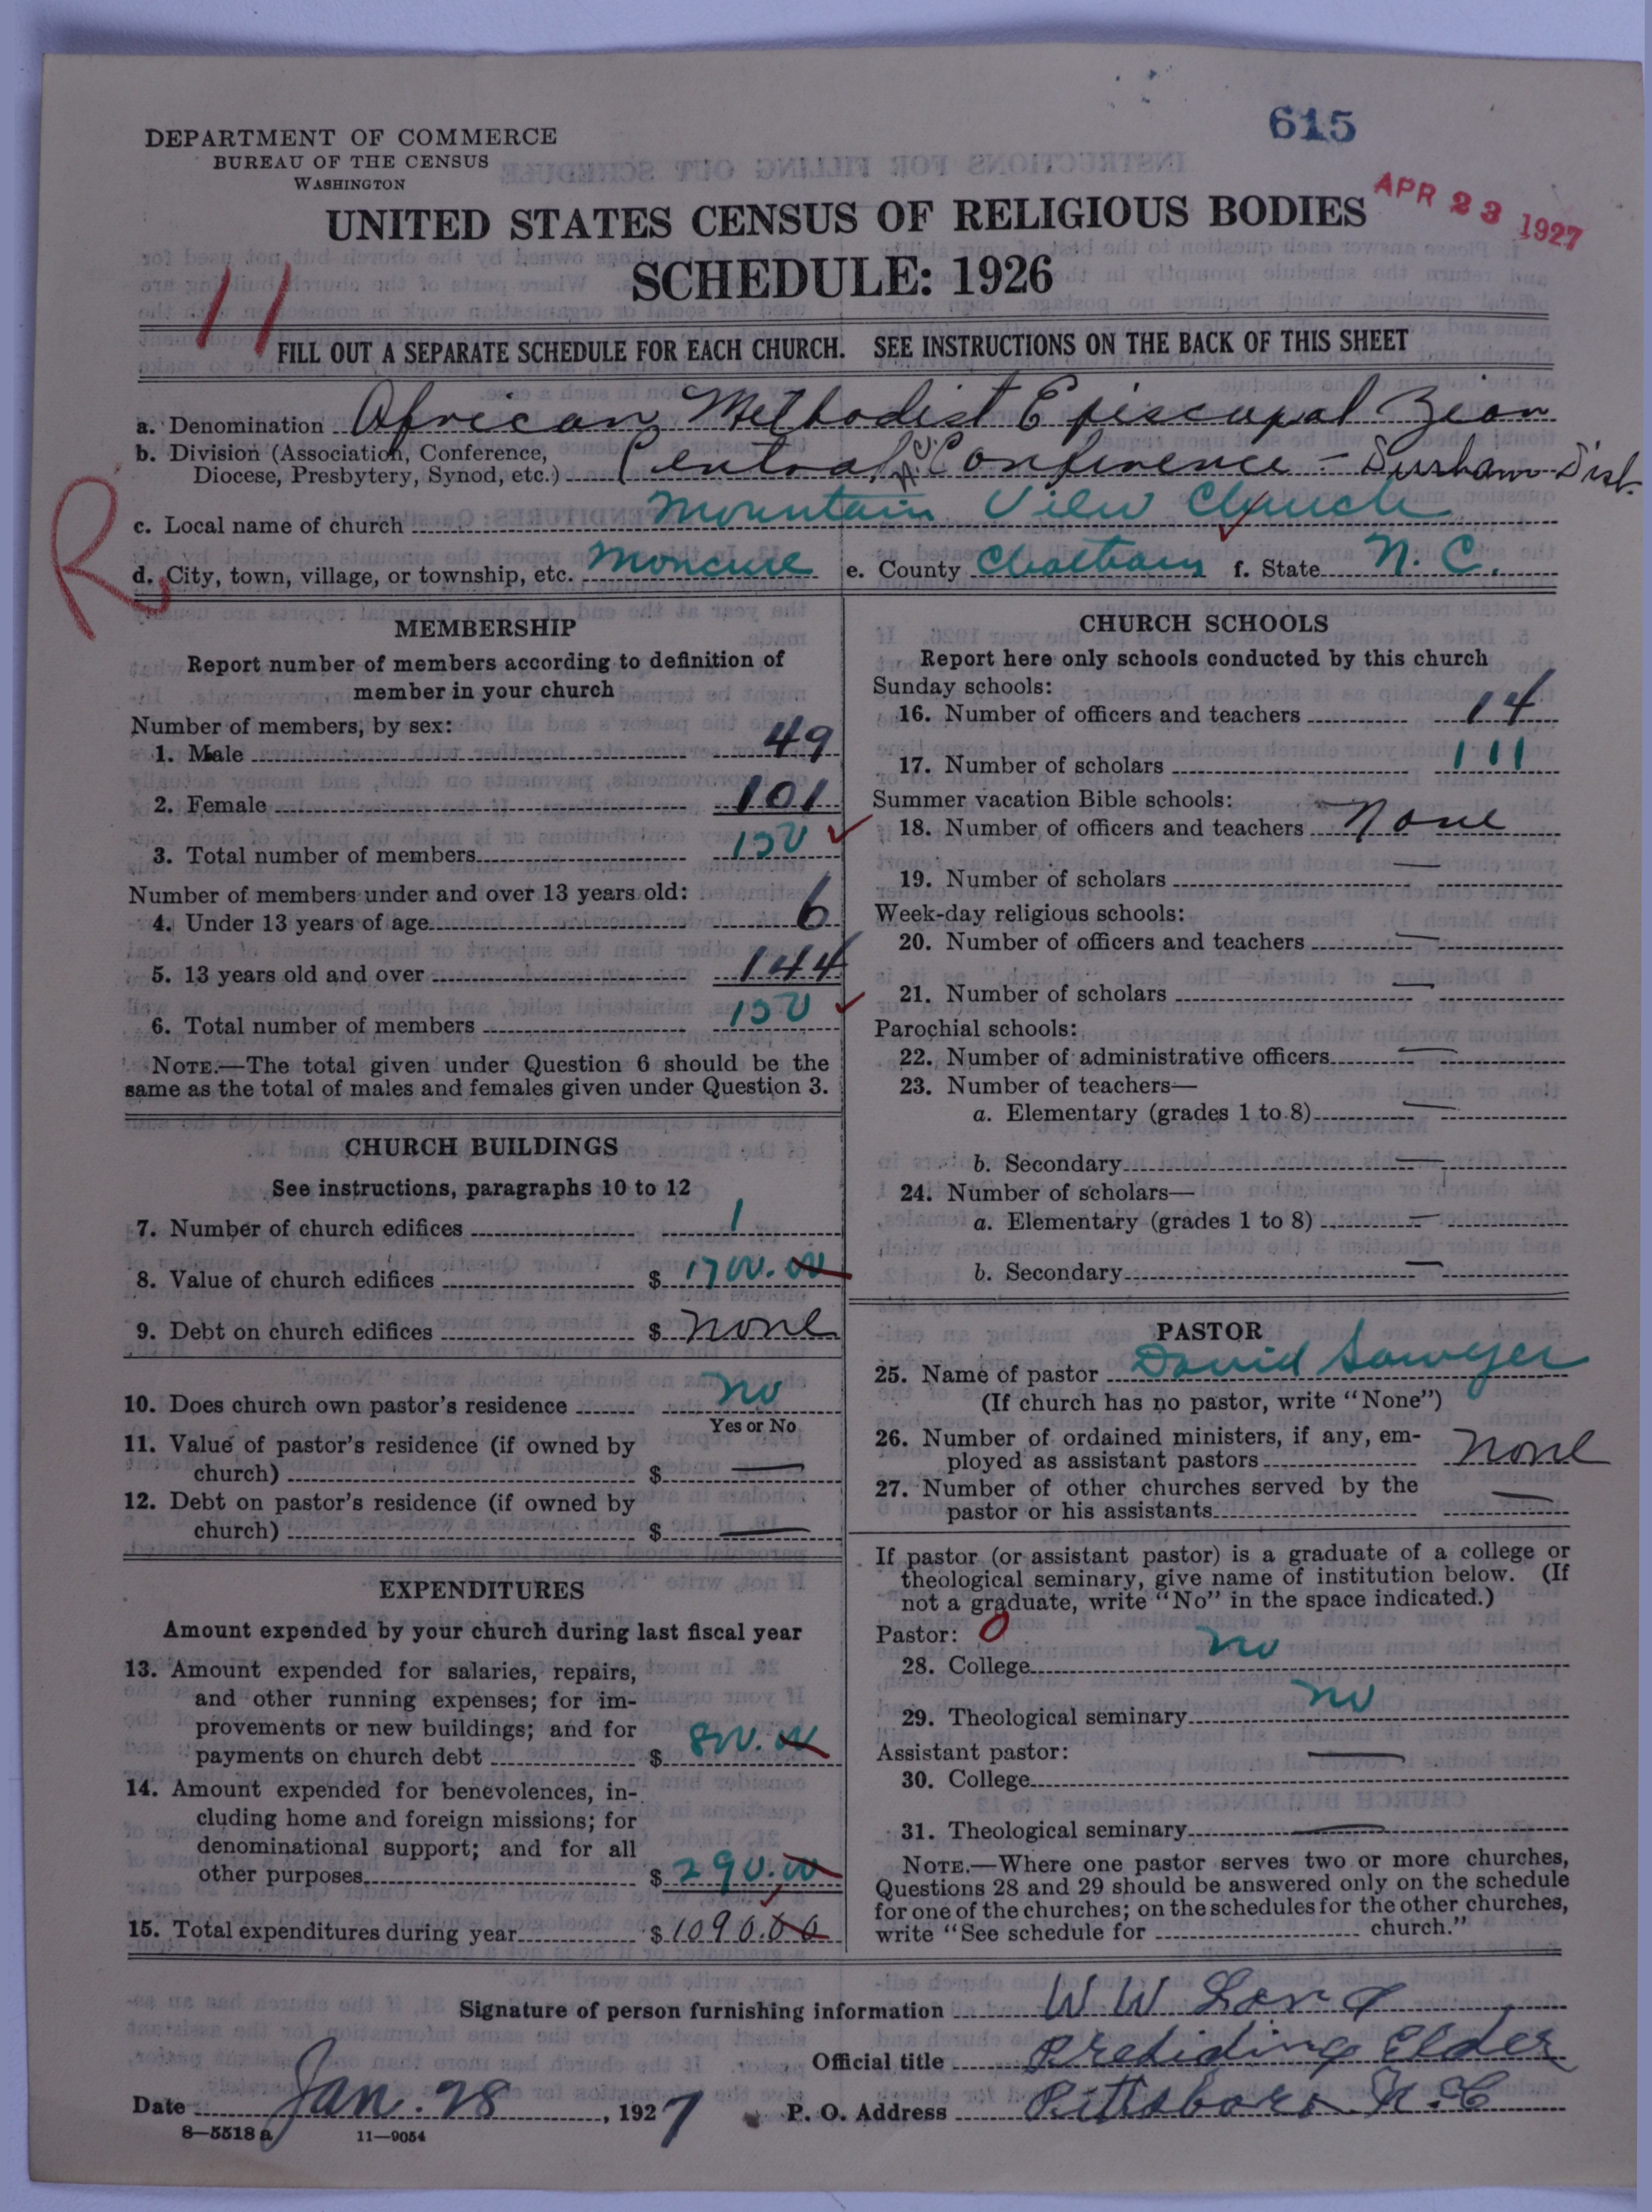 615
DEPARTMENT OF COMMERCE
BUREAU OF THE CENSUS
WASHINGTON
APR 23 1927
UNITED STATES CENSUS OF RELIGIOUS BODIES
SCHEDULE: 1926
11
FILL OUT A SEPARATE SCHEDULE FOR EACH CHURCH. SEE INSTRUCTIONS ON THE BACK OF THIS SHEET
a. Denomination African Methodist Episcopal Zion
b. Division (Association, Conference, Diocese, Presbytery, Synod, etc.) Central N.C. Conference - Durham Dist.
R
c. Local name of church Mountain View Church
d. City, town, village, or township, etc. Moncure e. County Chatham f. State N. C.
MEMBERSHIP
Report number of members according to definition of
member in your church
Number of members, by sex:
1. Male 49
2. Female 101
3. Total number of members 150
Number of members under and over 13 years old:
4. Under 13 years of age 6
5. 13 years old and over 144
6. Total number of members 150
NOTE.—The total given under Question 6 should be the
same as the total of males and females given under Question 3.
CHURCH BUILDINGS
See instructions, paragraphs 10 to 12
7. Number of church edifices 1
8. Value of church edifices $ 1700.00
9. Debt on church edifices $ None
10. Does church own pastor's residence No
Yes or No
11. Value of pastor's residence (if owned by
church) $ —
12. Debt on pastor's residence (if owned by
church) $ —
EXPENDITURES
Amount expended by your church during last fiscal year
13. Amount expended for salaries, repairs,
and other running expenses; for im-
provements or new buildings; and for
payments on church debt $ 800.00
14. Amount expended for benevolences, in-
cluding home and foreign missions; for
denominational support; and for all
other purposes $ 290.00
15. Total expenditures during year $ 1090.00
CHURCH SCHOOLS
Report here only schools conducted by this church
Sunday schools:
16. Number of officers and teachers 14
17. Number of scholars 111
Summer vacation Bible schools:
18. Number of officers and teachers None
19. Number of scholars —
Week-day religious schools:
20. Number of officers and teachers —
21. Number of scholars —
Parochial schools:
22. Number of administrative officers —
23. Number of teachers—
a. Elementary (grades 1 to 8) —
b. Secondary —
24. Number of scholars—
a. Elementary (grades 1 to 8) —
b. Secondary —
PASTOR
25. Name of pastor David Sawyer
(If church has no pastor, write "None")
26. Number of ordained ministers, if any, em-
ployed as assistant pastors None
27. Number of other churches served by the
pastor or his assistants —
If pastor (or assistant pastor) is a graduate of a college or
theological seminary, give name of institution below. (If
not a graduate, write "No" in the space indicated.)
Pastor: 0
28. College No
29. Theological seminary No
Assistant pastor:
30. College —
31. Theological seminary —
NOTE.—Where one pastor serves two or more churches,
Questions 28 and 29 should be answered only on the schedule
for one of the churches; on the schedules for the other churches,
write "See schedule for church."
Signature of person furnishing information W W Long
Official title Presiding Elder
Date Jan. 28, 1927 P. O. Address Pittsboro N.C
8—5518 a 11—9054